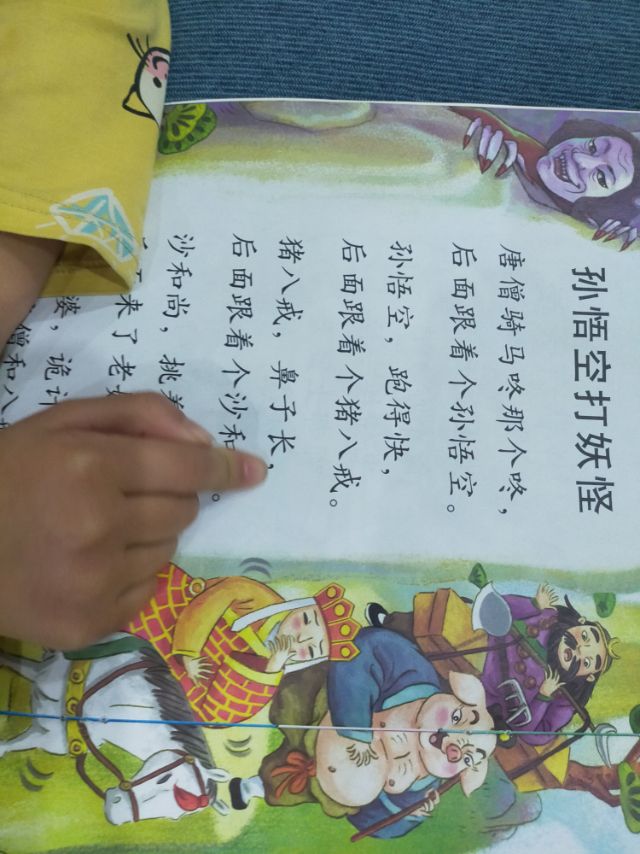 孙悟空打妖怪
唐僧骑马咚那个咚，
后面跟着个孙悟空。
孙悟空，跑得快，
后面跟着个猪八戒。
猪八戒，鼻子长，
后面跟着个沙和。
沙和尚，挑着
来了老
婆，诡计
僧和八